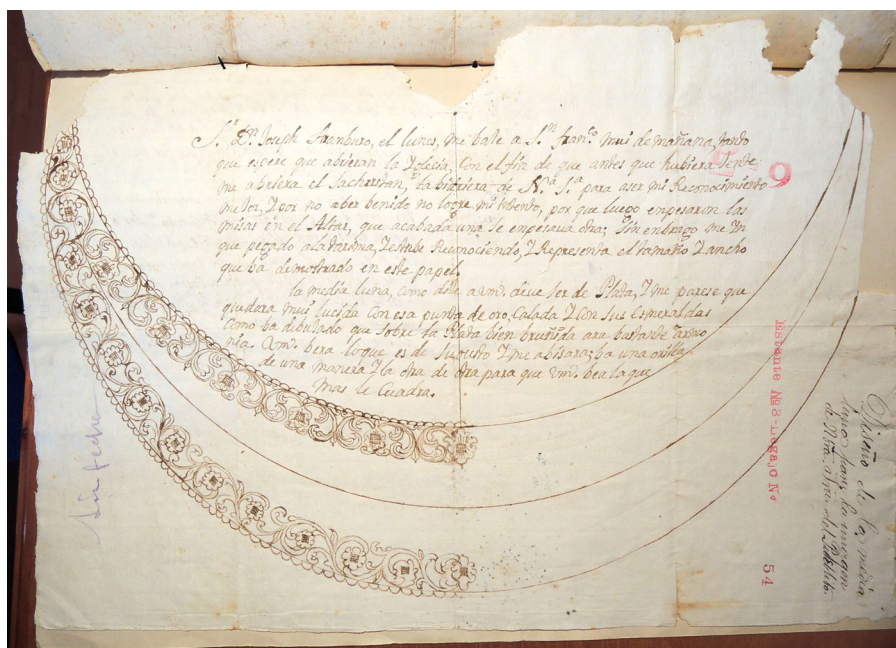 S.r D.n Joseph Aranburo, el lunes, me baje a S.n Fran.co mui de mañana, tanto
que espere que abrieran la Yglecia, con el fin de que antes que hubiera Jente,
me abriera el Sachristan, la bidriera de N.a S.a para aser mi Reconocimiento
mejor, y por no aber benido no logre mi intento, por que luego enpesaron las
misas en el Altar, que acabada una se enpesava otra; sin enbargo me
que pegado a la Peresma, y estube Reconociendo, y Representa el tamaño y ancho
que ba demostrado en este papel.
la media luna, como dije a vmd. deve ser de Plata, y me parese que
quedara mui lucida con esa punta de oro, Calada y con sus Esmeraldas
como ba dibujado que sobre la Plata bien bruñida ara bastante armo
nia. Vmd. bera lo que es de su Gusto y me abisara; ba una orilla
de una manera y la otra de otra para que vmd. bea la que
mas le Cuadra.
9
Estante Nº 3-Legajo Nº
54
Diseño de la media
luna para la imagen
de Ntra. Sra. del Pueblito
Sin fecha